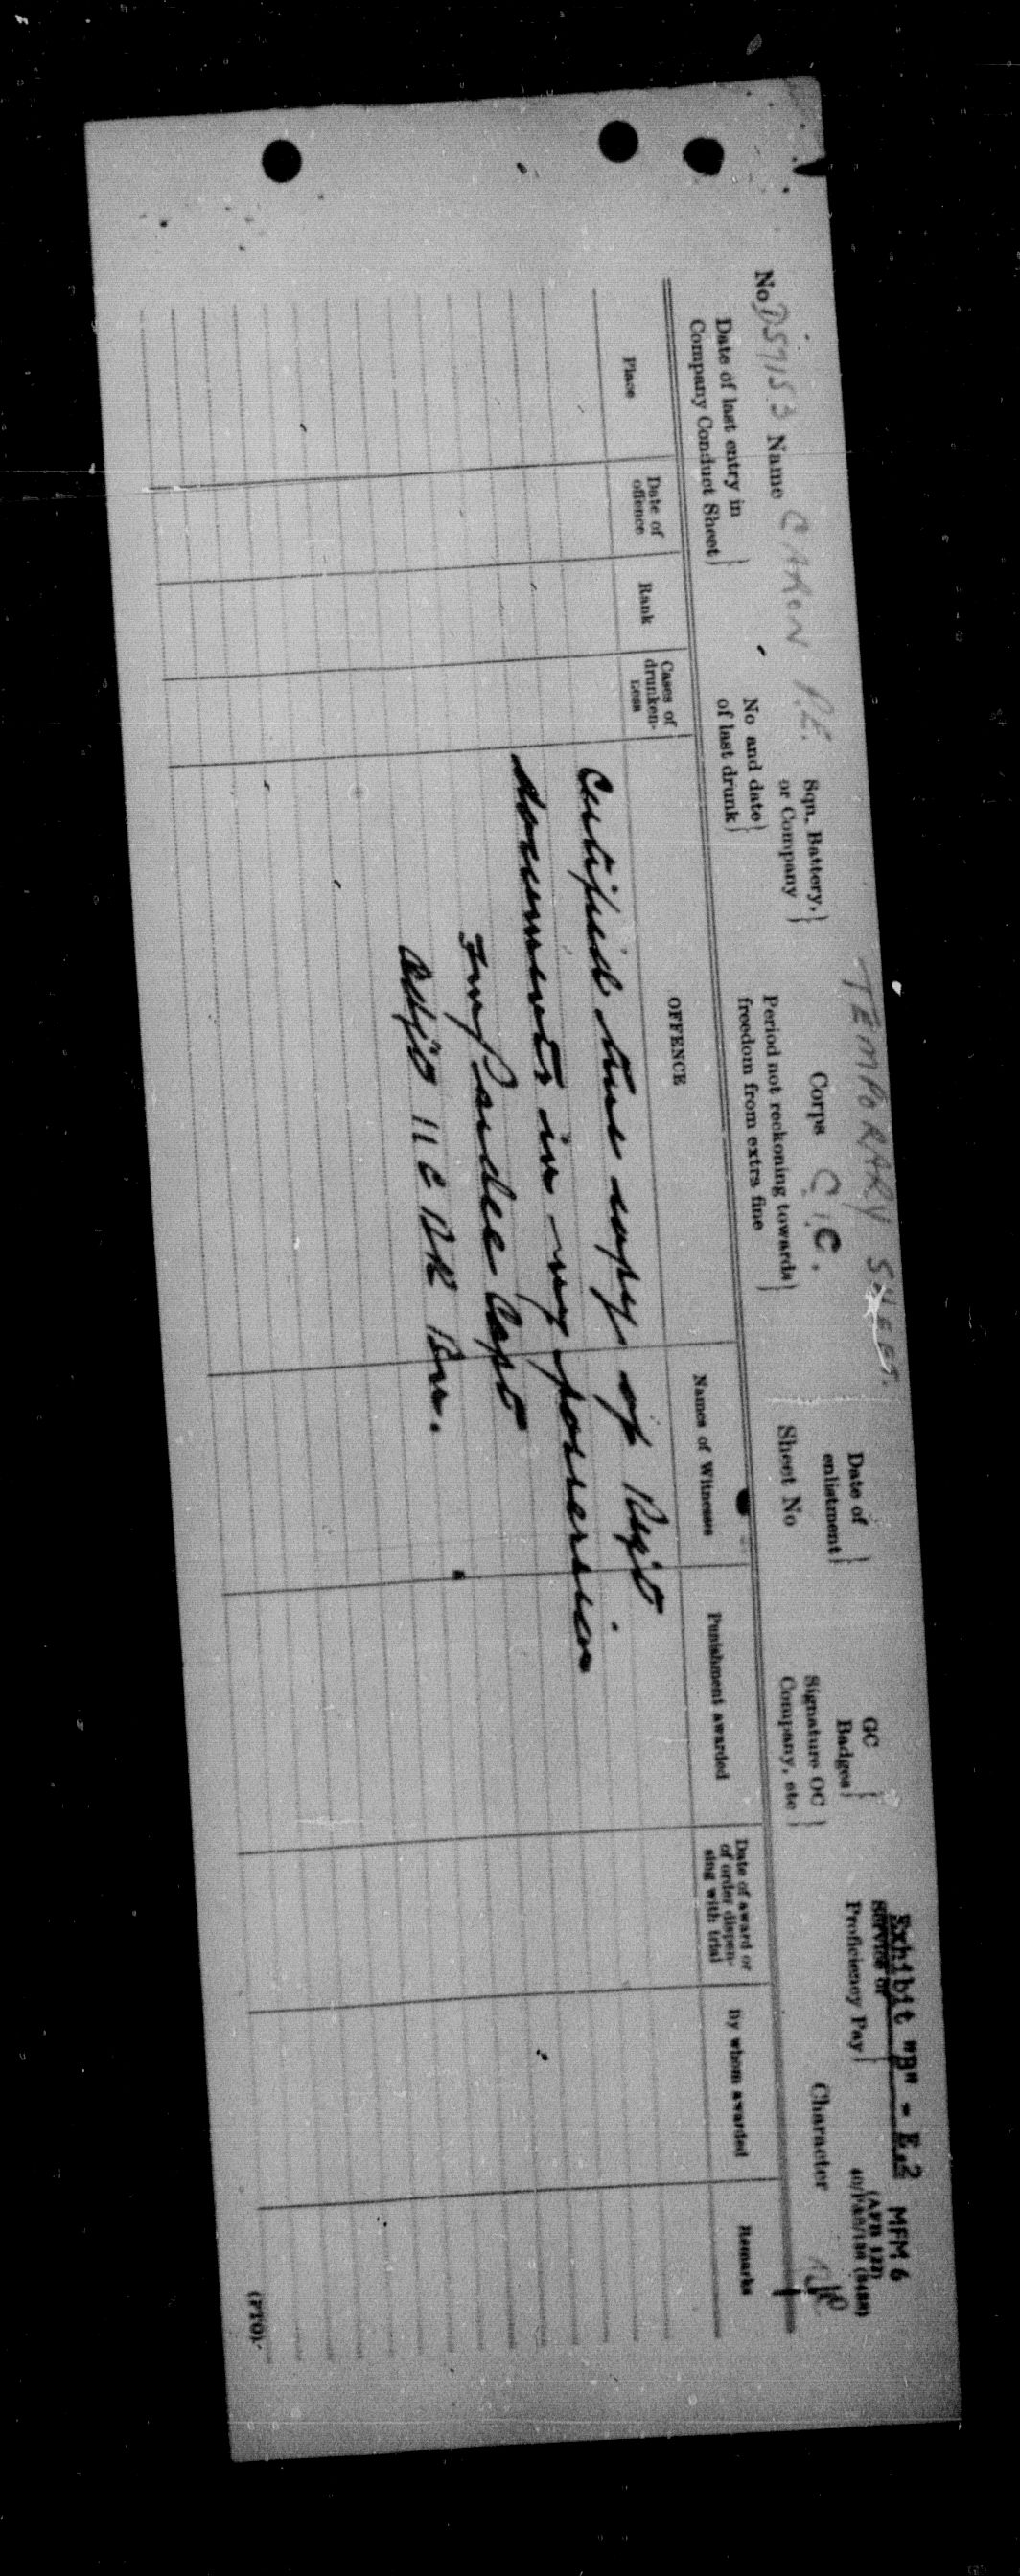 Exhibit "B" - E.2 MFM 6
(AFB 122)
TEMPORARY SHEET.
No D57153 Name CARON P.E. Sqn., Battery, or Company Corps C.I.C. Date of enlistment GC Badges Service or Proficiency Pay
Date of last entry in Company Conduct Sheet No and date of last drunk Period not reckoning towards freedom from extra fine Sheet No Signature OC Company, etc Character
Place Date of offence Rank Cases of drunkenness OFFENCE Names of Witnesses Punishment awarded Date of award or of order dispensing with trial By whom awarded Remarks
Certified true copy of Reg'd
documents in my possession
Capt
Adj't 11 C Bn.
(PTO)